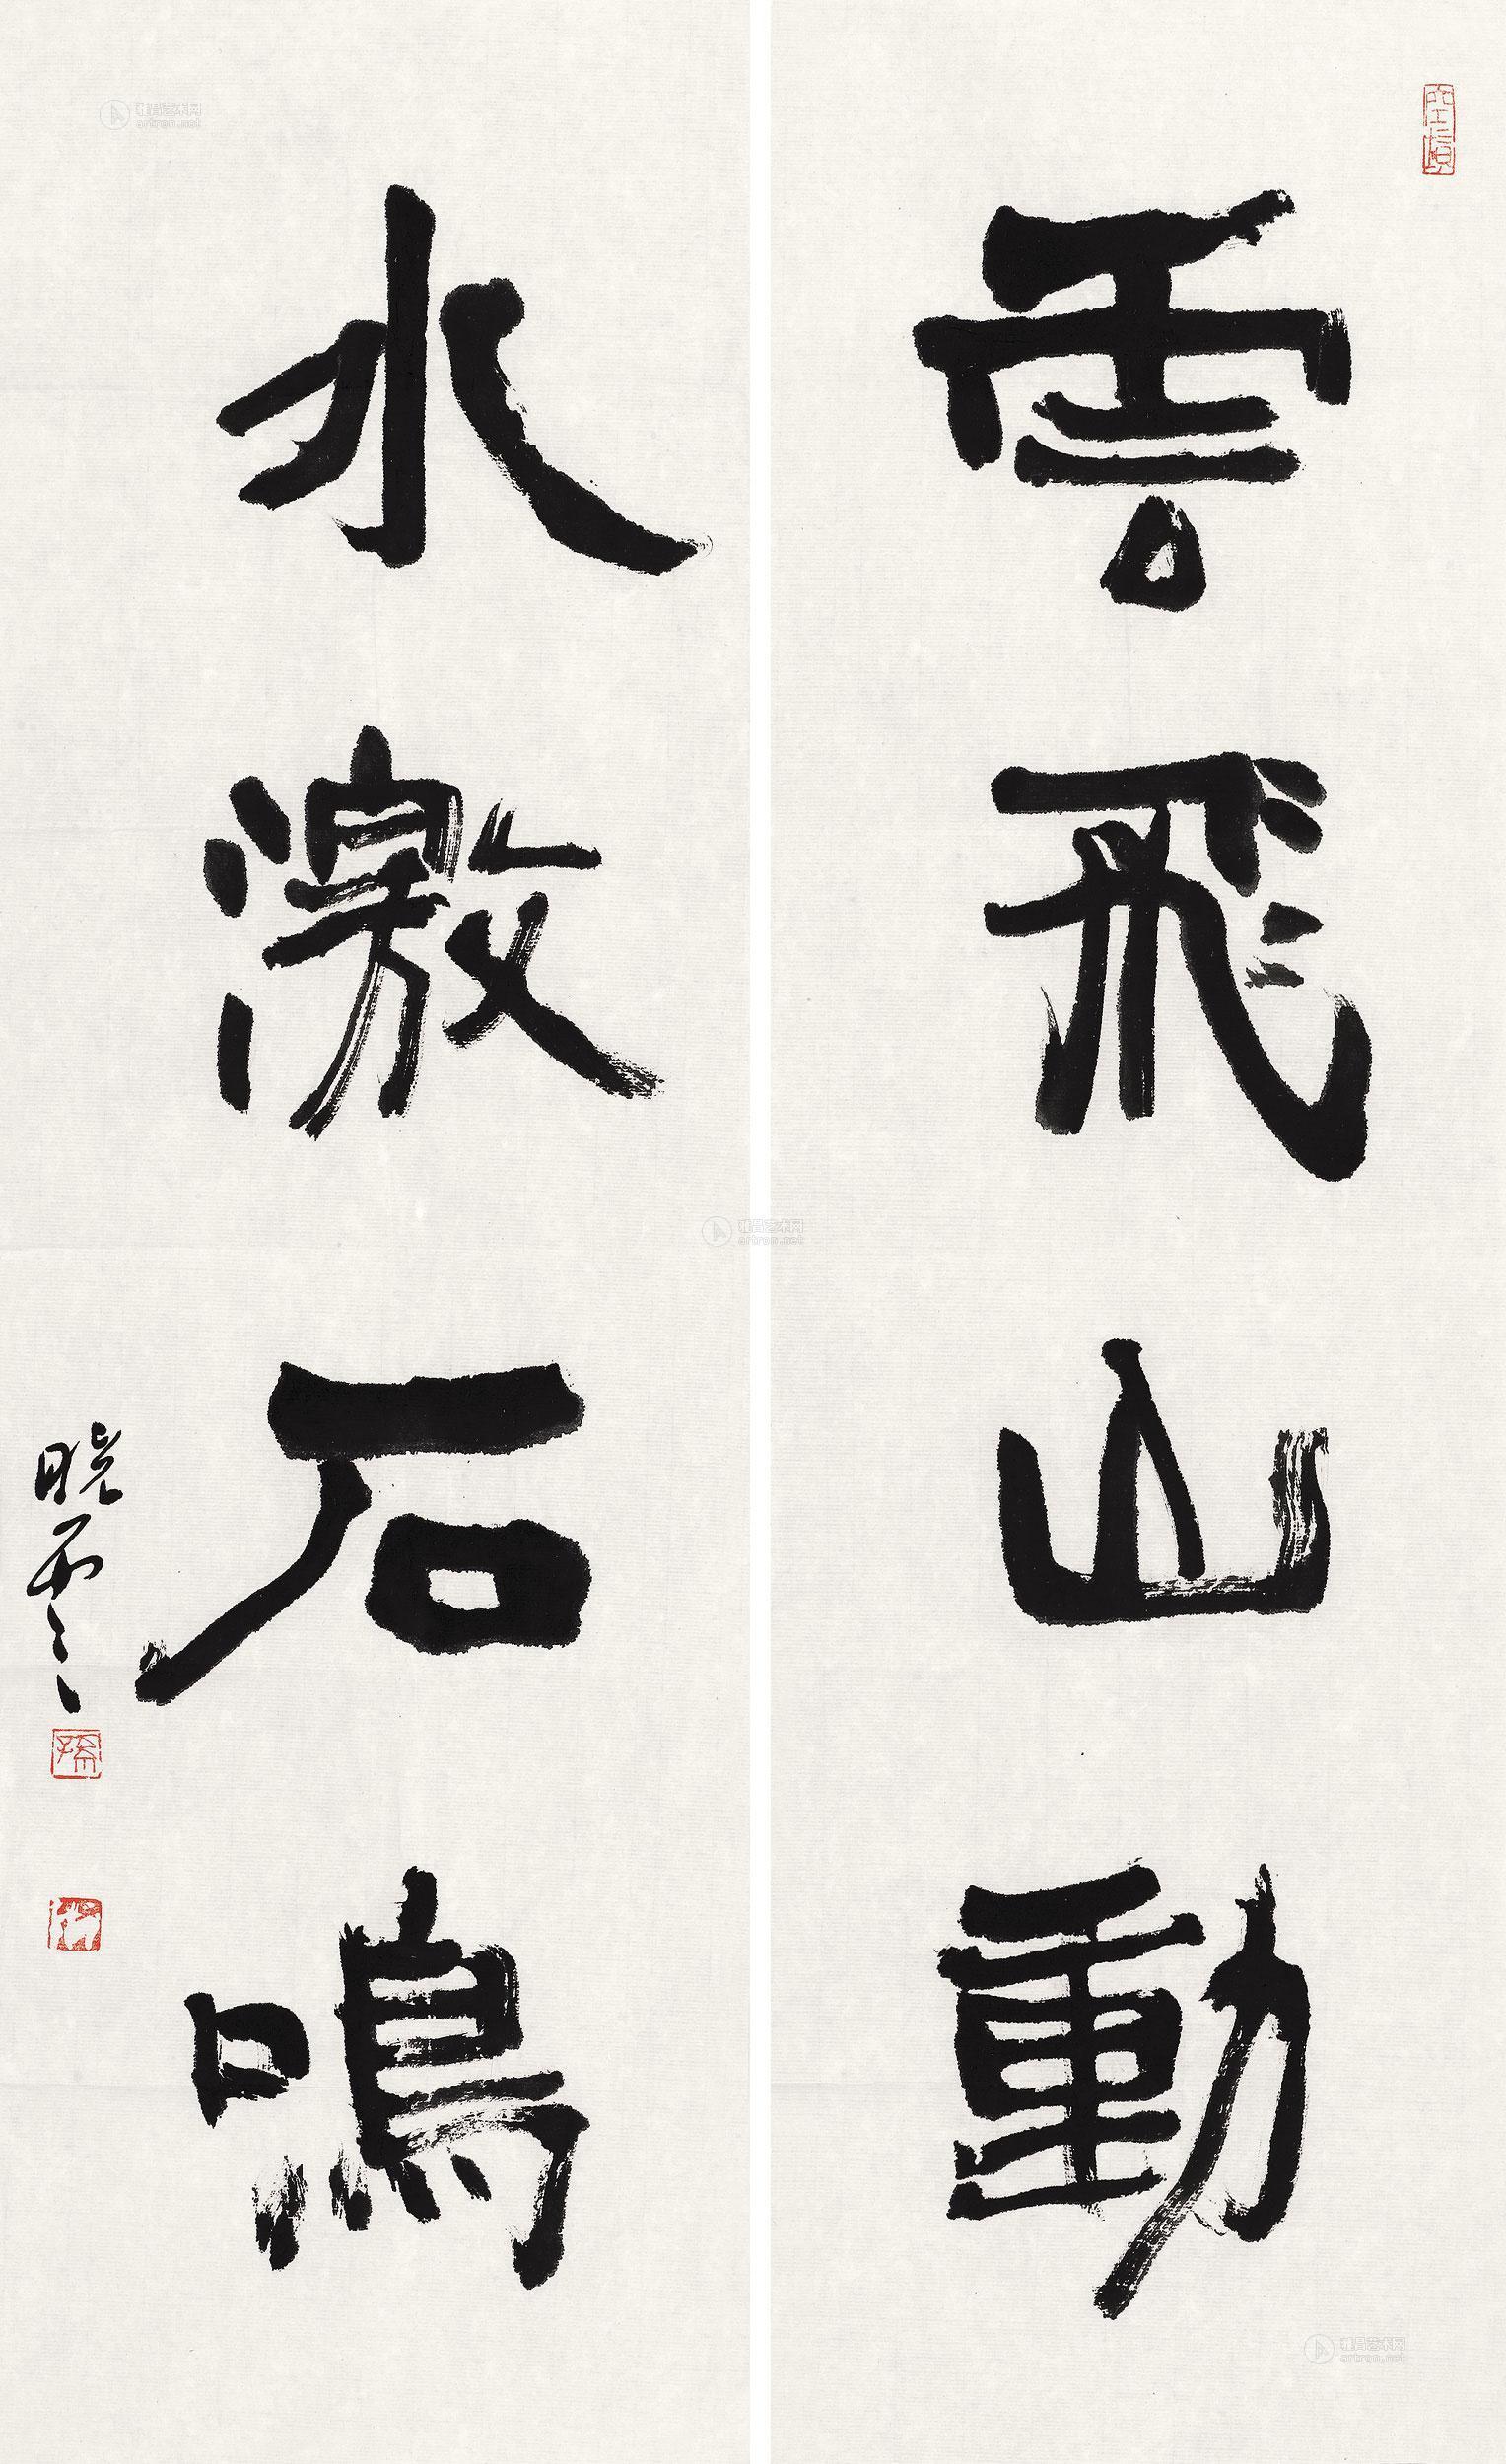 雲飛山動
水激石鳴
曉雲
雅昌艺术网
artron.net
雅昌艺术网
artron.net
雅昌艺术网
artron.net